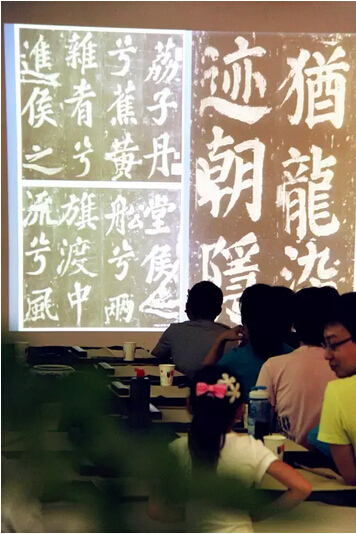 猶龍染
迹朝隱
荔子丹
兮蕉黃
雜肴兮
進侯之
堂侯之
舩兮兩
旗渡中
流兮風